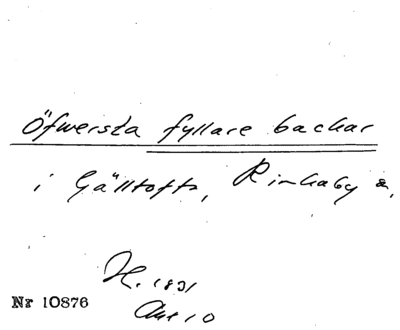 Öfwersta fyllare backar
i Gälltofta, Rinkaby s,
H. 1831
Nr 10876
Akt 10